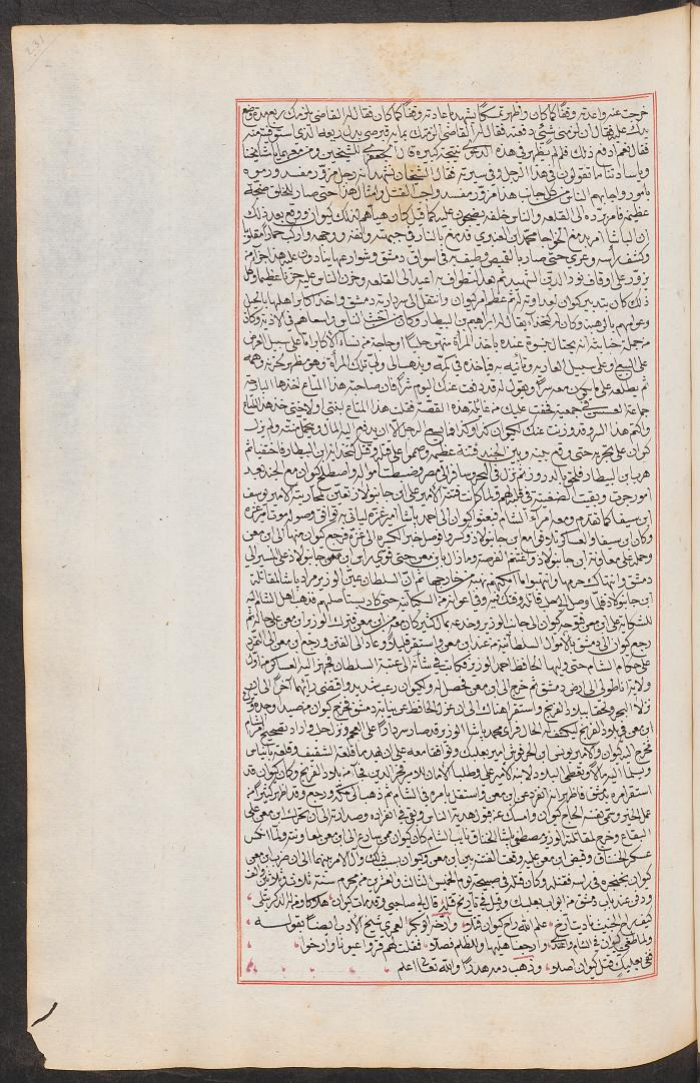 خرجت عنه واعدته وفقا كما كان وظهر تمسكا يشهد باعادته وقفا كما كان فقال له القاضي يلزمك ريع مدة وضع
يدك عليه فقال ان لزمني شيء دفعته فقال له القاضي الزمتك
فقال نعم ادفع ذلك فلم له نظير في هذه الدعوى نتيجة كبيرة
ويا سادتنا ما تقولون في هذا الرجل وفي سيرته فقال الشيخان نشهد انه رجل مزور مفسد ورموه
بامور واجابهم الناس من كل جانب هذا مزور مفسد واجب القتل وامثال هذا حتى صار للخلق ضجة
عظيمة فامر برده الى القلعة والناس خلفه يضجون عليه كما قيل كان هيأهم لذلك كيوان ووقع بعد ذلك
ان الباشا امر بدمغ الخواجا محمد ابن العنبري فدمغ بالنار في جبهته وانفه ووجهه واركب حمارا مقلوبا
وكشف رأسه وعري حتى صار بالقميص وطيف به في اسواق دمشق وشوارعها ينادون عليه هذا جزآء من
يزور على اوقاف نور الدين الشهيد ثم بعد التطواف به اعيد الى القلعة وحزن الناس عليه حزنا عظيما وكل
ذلك كان بتدبير كيوان لعداوته له ثم عظم امر كيوان وانتقل الى سردارية دمشق واخذ اكابر اهلها بالحيل
وعوامهم بالرهبة وكان له كتخدآ يقال له ابراهيم بن البيطار وكان من اخبث الناس واسعاهم في الاذية وكان
من جملة خباثته انه يحتال لنسوة عنده ياخذ المرأة منهن حليا او حاجة من نسآء الاكابر اما على سبيل العرض
على البيع او على سبيل العارية وتأتيه به فياخذه في كمه ويذهب الى ولي تلك المرأة وهو مظهر لحزنه وهمه
ثم يطلعه على ما يكون معه سرا ويقول له قد دفعت عنك اليوم شرا فان صاحبة هذا المتاع اخذها البارحة
جماعة العسس في جمعية فخفت عليك من غائلة هذه القصة فقلت هذا المتاع لبنتي اولاختي خذ هذا المتاع
واكتم هذا السر وقد وزنت عنك لكيوان كذا وكذا فلا يسع الرجل الا ان يدفع اليه المال ويتحمل منته ولم يزل
كيوان على تجبره حتى وقع بينه وبين الجند فتنة عظيمة وصمموا على قتله وقتل كتخداه ابن البيطار فاختفيا ثم
هرب ابن البيطار فلحق بالدروز ثم نزل في البحر وسافر الى مصر وضبطت امواله واصطلح كيوان مع الجند بعد
امور جرت وبقيت الضغينة في قلبه لهم فلما كانت فتنة الامير علي ابن جانبولاذ تعين لمحاربته الامير يوسف
ابن سيفا كما تقدم ومعه امرآء الشام فبعثوا كيوان الى احمد باشا امير غزة لياتي به فوافق وصوله موت امير غزة
وكان ابن سيفا والعسكر تلاقوا مع ابن جانبولاذ وكسروا فوصل خبر الكسرة الى غزة فرجع كيوان منها الى ابن معن
وحمله على معاونة ابن جانبولاذ واغتنم الفرصة وما زال بابن معن حتى قوي راي ابن معن وجانبولاذ على المسير الى
دمشق وانتهاك حرمها وانتهبوا ما امكنهم نهبه من خارجها ثم ان السلطان عين الوزير مراد باشا لمقاتلة
ابن جانبولاذ فلما وصل الى حلب قاتله وفتك فيه وفي اعوانه من السكبانية حتى كاد يستاصلهم فذهب اهل الشام اليه
للشكاية على ابن معن فتوجه كيوان الى جانب الوزير وخدعه بمال كثير كان معه من ابن معن فترك الوزير ابن معن على حاله ثم
رجع كيوان الى دمشق بالاموال السلطانية من عند ابن معن واستقر قليلا وعاد الى الفتن ورجع ابن معن الى التمرد
على حكام الشام حتى وليها الحافظ احمد الوزير فكاتب في شأنه الى عتبة السلطان فجهز اليه العساكر من اول
ولاية اناطولي الى ارض دمشق ثم خرج الى ابن معن فحصل له ولكيوان رعب شديد واقتضى رأيهما آخرا الى ان
نزلا البحر ولحقا ببلاد الفرنج واستقر هناك الى ان عزل الحافظ عن نيابة دمشق فخرج كيوان من صيدا وجده
ابن معن في بلاد الفرنج ليكشف له الحال فرآى محمد باشا الوزير قد صار سردارا على العجم ونزل حلب واراد تصحيح امر الشام
فخرج اليه كيوان والامير يونس ابن الحرفوش امير بعلبك وتوافقا معه على ان يهدما قلعة الشقيف وقلعة بانياس
ويسلما اليه مالا ويعطى البلاد لابنه الامير علي وطلبا الامان للامير فخر الدين فجآء من بلاد الفرنج وكان كيوان قد
استقر امره بدمشق فاظهر انه انفرد عن ابن معن واستقل بامره في الشام ثم ذهب الى مكة ورجع وقد اظهر كثيرا من
عمل الخير وحتى بقينه الحاج كيوان وامسك عن حقوق اذية الناس وبقي في انفراده وصدارته الى ان تحرك ابن معن على
البقاع وخرج لمقاتلته الوزير مصطفى باشا الخناق نائب الشام كان كيوان ممن سارع الى ابن معن لمعاونته ولما انكسر
عسكر الخناق وقبض ابن معن عليه وقعت الفتنة بين ابن معن وكيوان بسبب ذلك وآل الامر بينهما الى ان ضرب ابن معن
كيوان بخنجره في راسه فقتله وكان قتله في صبيحة يوم الخميس الثالث والعشرين من محرم سنة ثلاث وثلاثين والف
ودفن عند باب دمشق من ابواب بعلبك وقيل في تاريخ قتله قال لي صاحبي وقد مات كيوان هلاكا وما له ذكر يتلى
كيف راح الخبيث نادبت ارخ علم الله راح كيوان قتلا وارخه ابو بكر العمري شيخ الادب ايضا بقوله
ولما طغى كيوان في الشام واعتدى وارجف اهليها وبالظلم فصلا فقلت لهم قروا عيونا وارخوا
ففي بعلبك قتل كيوان اصلا وذهب دمه هدرا والله تعالى اعلم